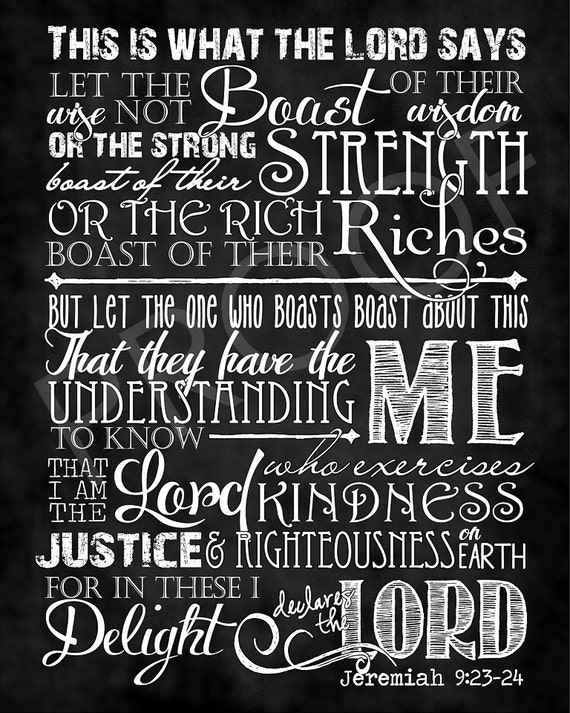 THIS IS WHAT THE LORD SAYS
LET THE wise NOT Boast OF THEIR wisdom
OR THE STRONG boast of their STRENGTH
OR THE RICH BOAST OF THEIR Riches
BUT LET THE ONE WHO BOASTS BOAST ABOUT THIS
That they have the UNDERSTANDING TO KNOW ME
THAT I AM THE Lord who exercises KINDNESS
JUSTICE & RIGHTEOUSNESS on EARTH
FOR IN THESE I Delight declares the LORD
Jeremiah 9:23-24
PROOF